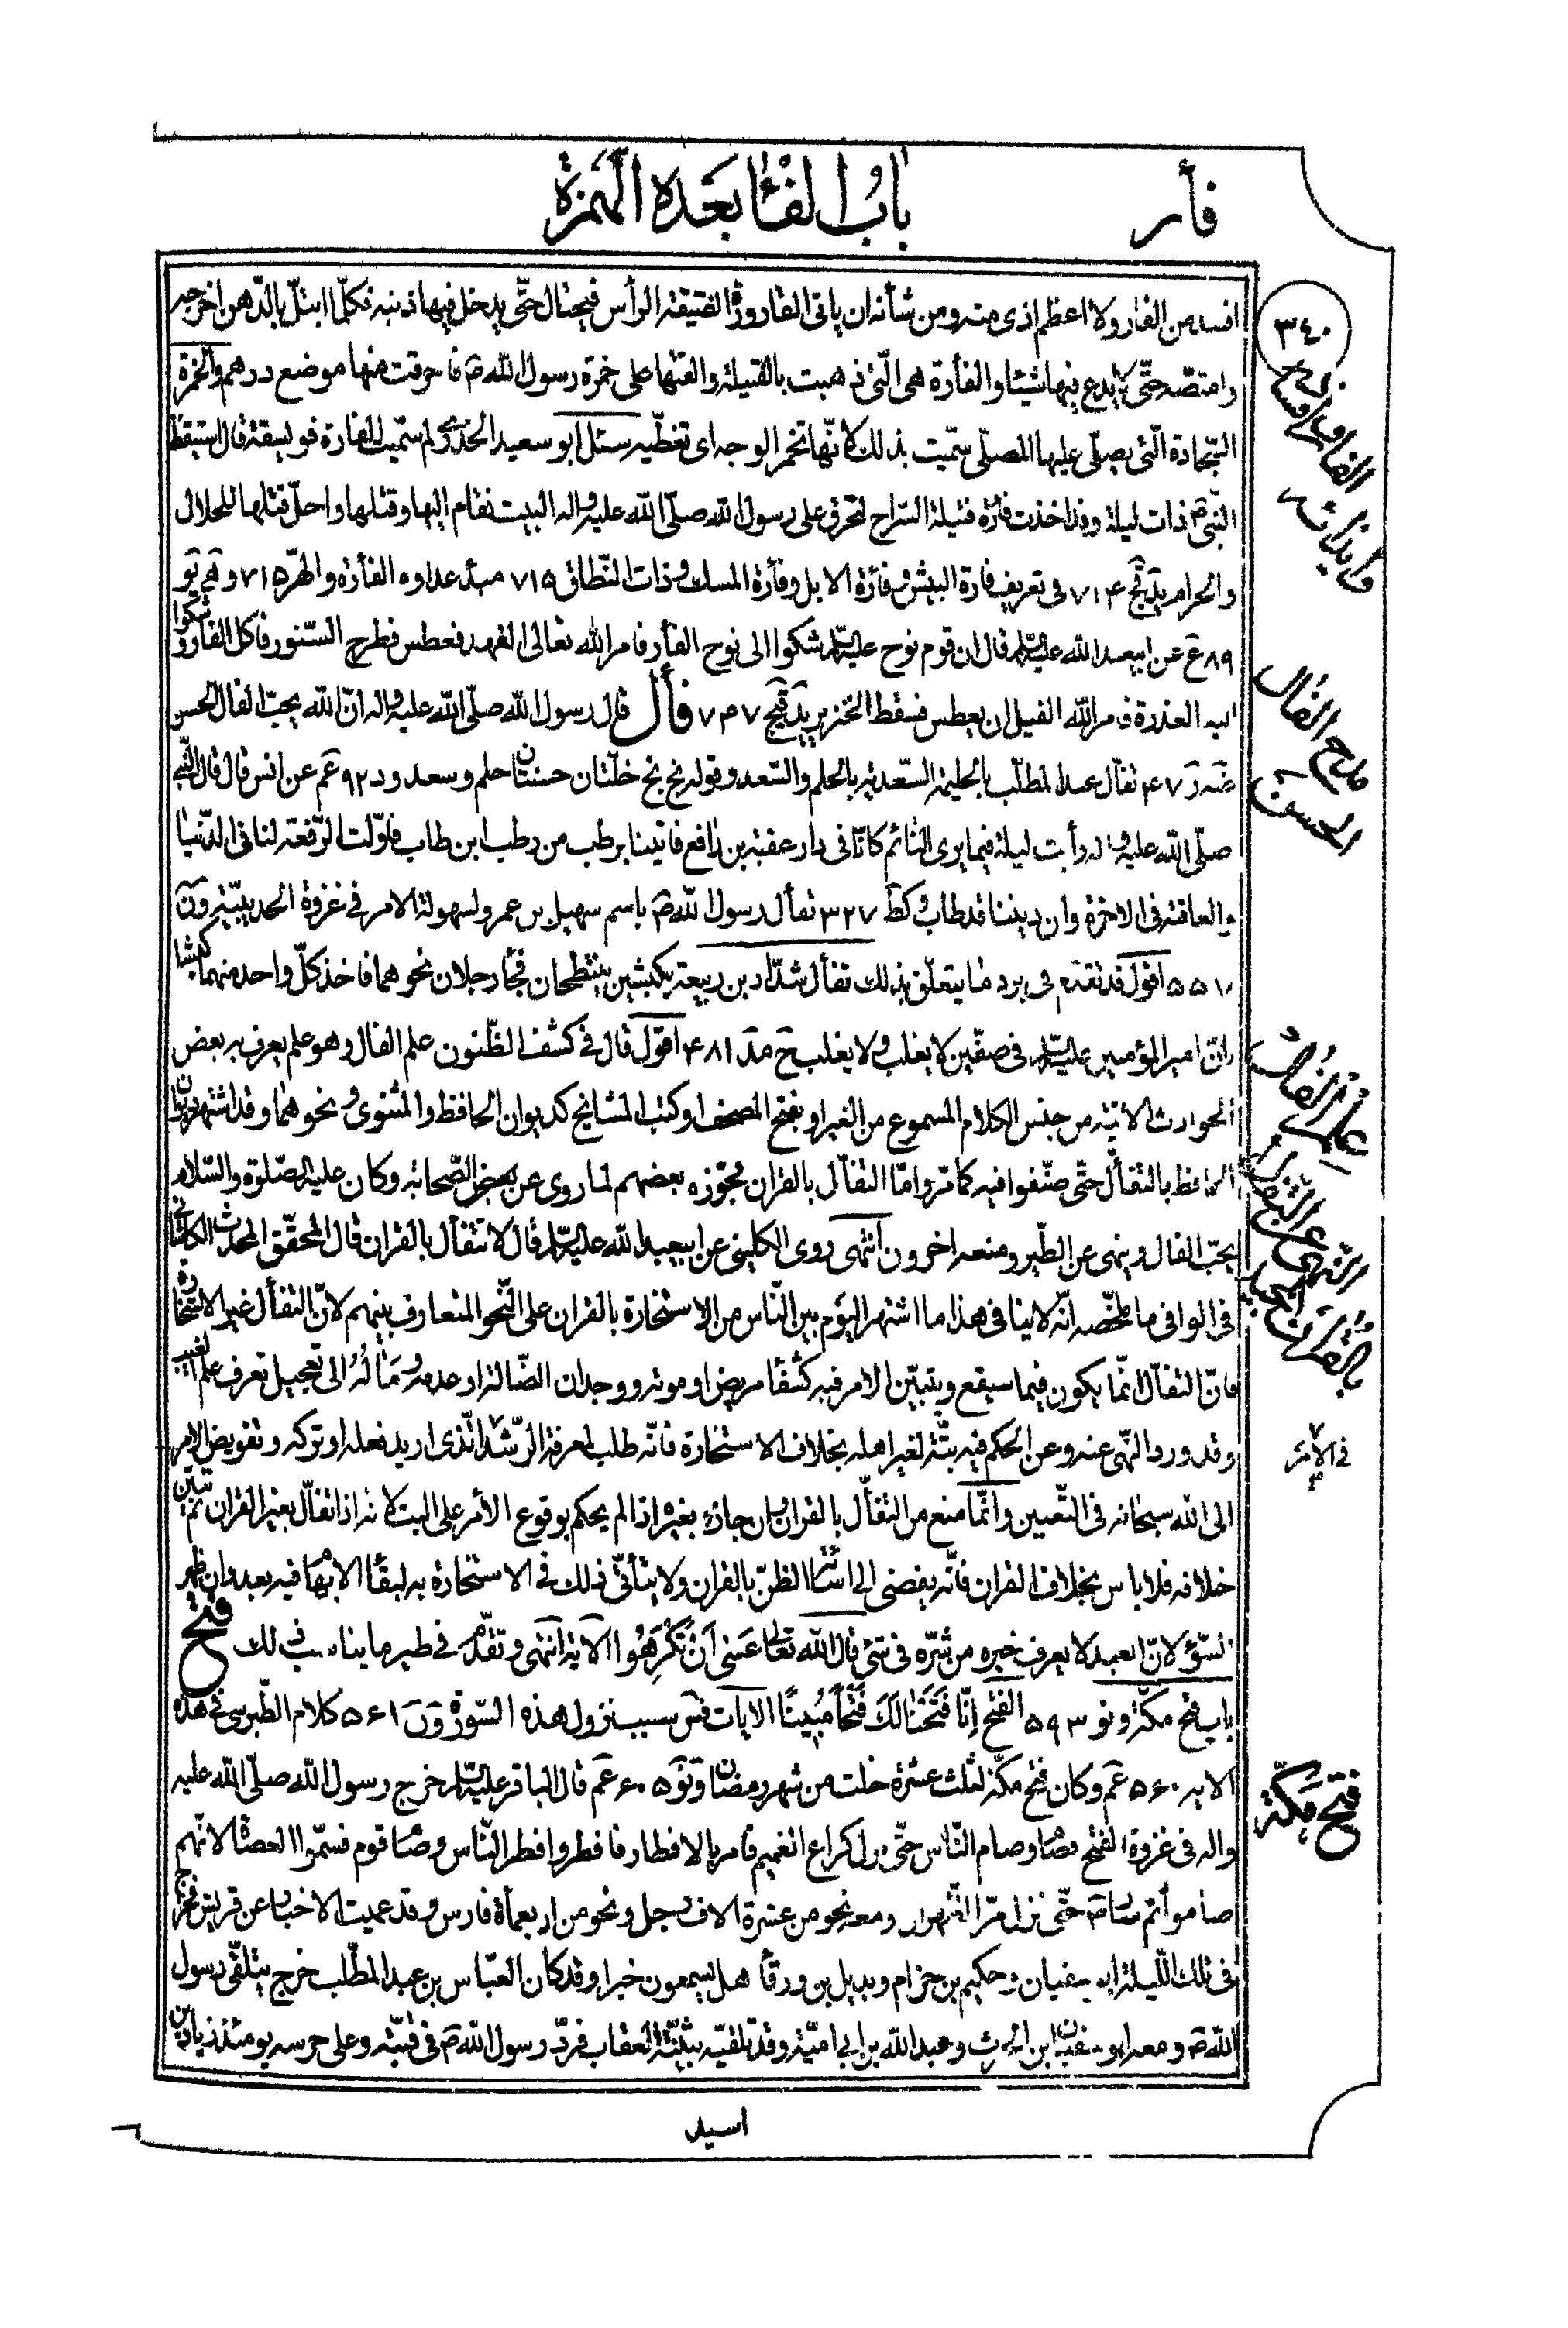 فأر
باب الفاء بعده الهمزة
٣٤٠
افسد من الفار ولا اعظم اذى منه ومن شأنه ان ياتى القارورة الضيقة الرأس فيحتال حتّى يدخل فيها ذنبه فكلّما ابتلّ بالدّهن اخرجه
وامتصّه حتّى لا يدع فيها شيئا والفأرة هى الّتى ذهبت بالفتيلة والقتها على خمرة رسول الله ص فاحرقت منها موضع درهم والخمرة
السّجادة الّتى يصلّى عليها المصلّى سمّيت بذلك لانّها تخمر الوجه اى تغطّيه سئل ابو سعيد الخدرى لم سمّيت الفارة فويسقة قال استيقظ
النّبى ص ذات ليلة وقد اخذت فارة فتيلة السّراج لتحرق على رسول الله صلّى الله عليه واله البيت فقام اليها وقتلها واحلّ قتلها للحلال
والحرام يد قج ٧١۴ فى تعريف فارة البيش وفأرة الابل وفأرة المسك وذات النّطاق ٧١۵ مبدء عداوه الفأرة والهرّ ٧١۵ و
٨٩ ع عن ابيعبد الله عليه السّلم قال ان قوم نوح عليه السّلم شكوا الى نوح الفأر فامر الله تعالى الفهد فعطس فطرح السّنور فاكل الفار وشكوا
اليه العذرة فامر الله الفيل ان يعطس فسقط الخنزير يد قيج ٧۴٧ فأل قال رسول الله صلّى الله عليه واله انّ الله يحبّ الفال الحسن
٧۴ تفأل عبد المطّلب بالحليمة السّعديه بالحلم والسّعد وقوله بخ بخ خلّتان حسنتان حلم وسعد ود ٩٢ عم عن انس قال قال النّبى
صلّى الله عليه واله رأيت ليلة فيما يرى النّائم كانّا فى دار عقبة بن رافع فاتينا برطب من رطب ابن طاب فاوّلت الرّفعة لنا فى الدّنيا
والعاقبة فى الاخرة وان ديننا قد طاب و كط ٣٢٧ تفأل رسول الله ص باسم سهيل بن عمرو لسهولة الامر فى غزوة الحديبيّة ون
۵۵٧ اقول قد تقدّم فى برد ما يتعلّق بذلك تفأل شدّاد بن ربيعة بكبشين ينتطحان فجاء رجلان نحوهما فاخذ كلّ واحد منهما كبشا
بانّ امير المؤمنين عليه السّلم فى صفّين لا يغلب ولا يغلب ح مد ۴٨١ اقول قال فى كشف الظّنون علم الفال وهو علم يعرف به بعض
الحوادث الاتية من جنس الكلام المسموع من الغير او بفتح المصحف او كتب المشايخ كديوان الحافظ والمثنوى ونحوهما وقد اشتهر ديوان
الحافظ بالتفأّل حتّى صنّفوا فيه كما مرّ وامّا التفأل بالقران فجوّزه بعضهم لما روى عن بعض الصّحابة وكان عليه الصّلوة والسّلام
يحبّ الفال وينهى عن الطّير ومنعه اخرون انتهى روى الكلينى عن ابيعبد الله عليه السّلم قال لا تتفأل بالقران قال المحقّق المحدث الكاشانى
فى الوافى ما ملخّصه انّه لا ينافى هذا ما اشتهر اليوم بين النّاس من الاستخارة بالقران على النّحو المتعارف بينهم لانّ التفأل غير الاستخارة
فانّ التفأل انّما يكون فيما سيقع ويتبيّن الامر فيه كشفاء مريض او موته ووجدان الضّالة او عدمه وماله الى تعجيل تعرف علم الغيب
وقد ورد النّهى عنه وعن الحكم فيه بتّة لغير اهله بخلاف الاستخارة فانّه طلب لمعرفة الرّشد الّذى اريد فعله او تركه وتفويض الامر
فى الامر
الى الله سبحانه فى التّعيين وانّما منع من التفأّل بالقران وان جاز بغيره اذا لم يحكم بوقوع الأمر على البت لانه اذا تفأل بغير القران ثم تبيّن
خلافه فلا باس بخلاف القران فانّه يفضى الى اسائة الظنّ بالقران ولا يتأتّى ذلك فى الاستخارة به لبقاء الابهام فيه بعد وان ظهر
السّوء لانّ العبد لا يعرف خيره من شرّه فى شئ قال الله تعالى عَسٰى اَنْ تَكْرَهُوا الاية انتهى وتقدّم فى طير ما يناسب ذلك فتح
باب فتح مكّة و نو ۵٩٣ الفتح اِنّا فَتَحْنٰا لَكَ فَتْحاً مُبِيناً الايات فس سبب نزول هذه السّورة ون ۵۶١ كلام الطّبرسى فى هذه
الايه ۵۶٠ عم وكان فتح مكّة لثلث عشرة خلت من شهر رمضان و نو ۶٠۵ عم قال الباقر عليه السّلم خرج رسول الله صلّى الله عليه
واله فى غزوة الفتح فصام وصام النّاس حتّى نزل كراع الغميم فامر بالافطار فافطر وافطر النّاس وصام قوم فسمّوا العصاة لانّهم
صاموا ثم سار ص حتّى نزل مرّ الظّهران ومعه نحو من عشرة الاف رجل ونحو من اربعمأة فارس وقد عميت الاخبار عن قريش فخرج
فى تلك اللّيلة ابو سفيان وحكيم بن حزام وبديل بن ورقاء هل يسمعون خبرا وقد كان العبّاس بن عبد المطّلب خرج يتلقّى رسول
الله ص ومعه ابو سفيان ابن الحرث وعبد الله بن ابى اميّة وقد تلقيّه بثنيّة العقاب فردّ رسول الله ص فى قبّته وعلى حرسه يومئذ زياد بن
اسيد
مدح الفال
الحسن
علم الفال
النّهى عن التفأل
بالقران المجيد
فتح مكّة